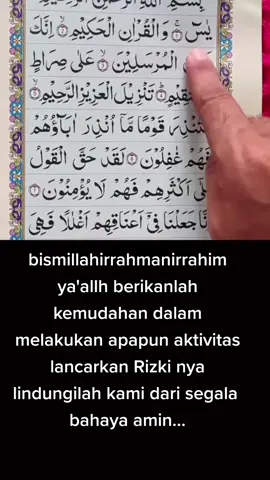 بِسْمِ اللهِ الرَّحْمٰنِ الرَّحِيْمِ
يٰسۤ ۚ وَالْقُرْاٰنِ الْحَكِيْمِ ۙ اِنَّكَ
الْمُرْسَلِيْنَ ۙ عَلٰى صِرَاطٍ
تَنْزِيْلَ الْعَزِيْزِ الرَّحِيْمِ ۙ
قَوْمًا مَّاۤ اُنْذِرَ اٰبَاۤؤُهُمْ
فَهُمْ غٰفِلُوْنَ لَقَدْ حَقَّ الْقَوْلُ
اَكْثَرِهِمْ فَهُمْ لَا يُؤْمِنُوْنَ
جَعَلْنَا فِيْۤ اَعْنَاقِهِمْ اَغْلٰلًا فَهِيَ
bismillahirrahmanirrahim
ya'allh berikanlah
kemudahan dalam
melakukan apapun aktivitas
lancarkan Rizki nya
lindungilah kami dari segala
bahaya amin...